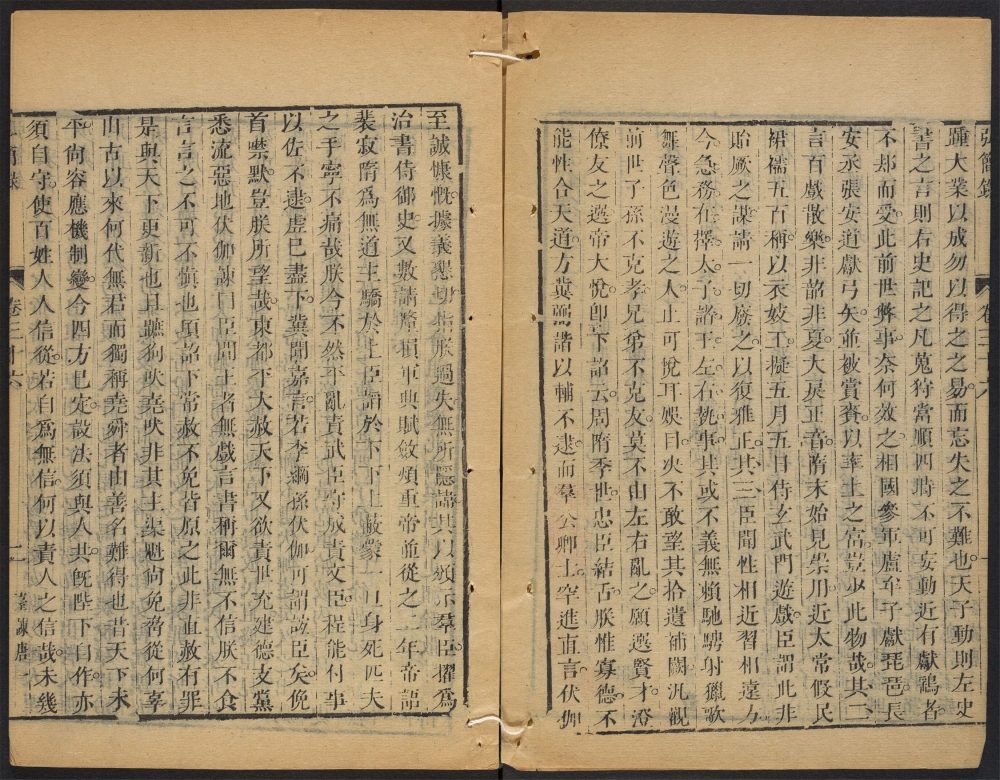 弘簡錄
卷三十六
一
踵大業以成勿以得之之易而忘失之不難也天子動則左史
書之言則右史記之凡蒐狩當順四時不可妄動近有獻鷂者
不却而受此前世弊事奈何效之相國參軍盧牟子獻琵琶長
安丞張安道獻弓矢並被賞賚以率土之富豈少此物哉其二
言百戲散樂非韶非夏大戾正音隋末始見崇用近太常假民
裙襦五百稱以衣妓工擬五月五日侍玄武門遊戲臣謂此非
貽厥之謀請一切廢之以復雅正其三臣聞性相近習相遠方
今急務在擇太子諸王左右執事其或不義無賴馳騁射獵歌
舞聲色漫遊之人止可悅耳娛目決不敢望其拾遺補闕汎觀
前世子孫不克孝兄弟不克友莫不由左右亂之願選賢才澄
僚友之選帝大悅即下詔云周隋季世忠臣結舌朕惟寡德不
能性合天道方冀弼諧以輔不逮而羣公卿士罕進直言伏伽
至誠慷慨據義懇切指朕過失無所隱諱其以頒示羣臣擢爲
治書侍御史又數請釐損軍典賦斂煩重帝並從之二年帝語
裴寂隋爲無道主驕於上臣諂於下下上蔽蒙一旦身死匹夫
之手寧不痛哉朕今不然平亂責武臣守成責文臣程能付事
以佐不逮虛巳盡下冀聞嘉言若李綱孫伏伽可謂誼臣矣俛
首噤默豈朕所望哉東都平大赦天下又欲責世充建德支黨
悉流惡地伏伽諫曰臣聞王者無戲言書稱爾無不信朕不食
言言之不可不愼也頃詔下常赦不免皆原之此非直赦有罪
是與天下更新也且蹠狗吠堯吠非其主渠魁尚免脅從何辜
山古以來何代無君而獨稱堯舜者由善名難得也昔天下未
平尚容應機制變今四方巳定設法須與人共旣陛下自作亦
須自守使百姓人人信從若自爲無信何以責人之信哉未幾
卷三十六
二
臺諫唐一